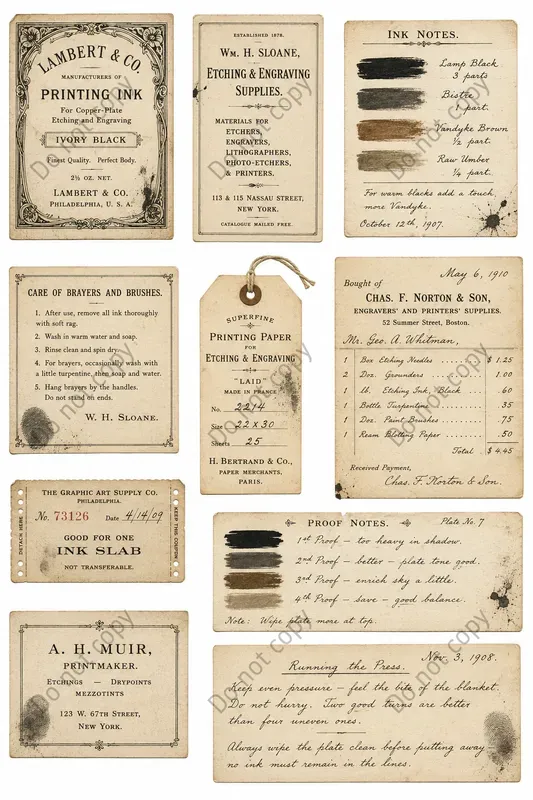 LAMBERT & CO.
MANUFACTURERS OF
PRINTING INK
For Copper-Plate
Etching and Engraving
IVORY BLACK
Finest Quality. Perfect Body.
2½ OZ. NET.
LAMBERT & CO.
PHILADELPHIA, U. S. A.
ESTABLISHED 1878.
WM. H. SLOANE,
ETCHING & ENGRAVING
SUPPLIES.
MATERIALS FOR
ETCHERS,
ENGRAVERS,
LITHOGRAPHERS,
PHOTO-ETCHERS,
& PRINTERS.
113 & 115 NASSAU STREET,
NEW YORK.
CATALOGUE MAILED FREE.
INK NOTES.
Lamp Black
3 parts
Bistre
1 part.
Vandyke Brown
½ part.
Raw Umber
¼ part.
For warm blacks add a touch
more Vandyke.
October 12th, 1907.
CARE OF BRAYERS AND BRUSHES.
1. After use, remove all ink thoroughly
with soft rag.
2. Wash in warm water and soap.
3. Rinse clean and spin dry.
4. For brayers, occasionally wash with
a little turpentine, then soap and water.
5. Hang brayers by the handles.
Do not stand on ends.
W. H. SLOANE.
SUPERFINE
PRINTING PAPER
FOR
ETCHING & ENGRAVING
"LAID"
MADE IN FRANCE
No. 2214
Size 22 x 30
Sheets 25
H. BERTRAND & CO.,
PAPER MERCHANTS,
PARIS.
May 6, 1910
Bought of
CHAS. F. NORTON & SON,
ENGRAVERS' AND PRINTERS' SUPPLIES.
52 Summer Street, Boston.
Mr. Geo. A. Whitman,
1 Box Etching Needles ........ $ 1.25
2 Doz. Grounders ........ 1.00
1 lb. Etching Ink, Black .... .60
1 Bottle Turpentine ........ .35
1 Doz. Paint Brushes ........ .75
1 Ream Blotting Paper ........ .50
Total $ 4.45
Received Payment,
Chas. F. Norton & Son.
THE GRAPHIC ART SUPPLY CO.
PHILADELPHIA.
No. 73126 Date 4/14/09
GOOD FOR ONE
INK SLAB
NOT TRANSFERABLE.
DETACH HERE
KEEP THIS COUPON
PROOF NOTES. Plate No. 7
1st Proof – too heavy in shadow.
2nd Proof – better – plate tone good.
3rd Proof – enrich sky a little.
4th Proof – save – good balance.
Note: Wipe plate more at top.
A. H. MUIR,
PRINTMAKER.
ETCHINGS — DRYPOINTS
MEZZOTINTS
123 W. 67TH STREET,
NEW YORK.
Nov. 3, 1908.
Running the Press.
Keep even pressure – feel the bite of the blanket.
Do not hurry. Two good turns are better
than four uneven ones.
Always wipe the plate clean before putting away–
no ink must remain in the lines.
Do not copy
Do not copy
Do not copy
Do not copy
Do not copy
Do not copy
Do not copy
Do not copy
Do not copy
Do not copy